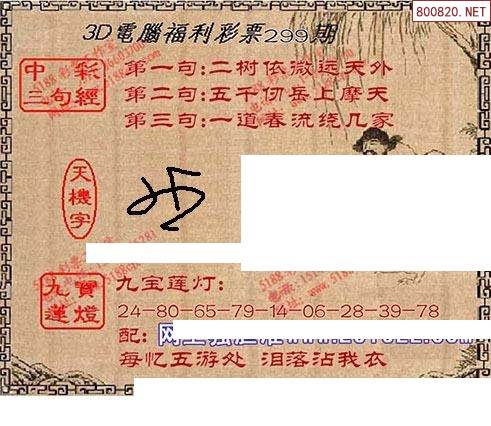 800820.NET
3D電腦福利彩票299期
中彩
三句經
第一句:二树依微远天外
第二句:五千仞岳上摩天
第三句:一道春流绕几家
天機字
九寶
蓮燈
九宝莲灯:
24-80-65-79-14-06-28-39-78
配:
每忆五游处 泪落沾我衣